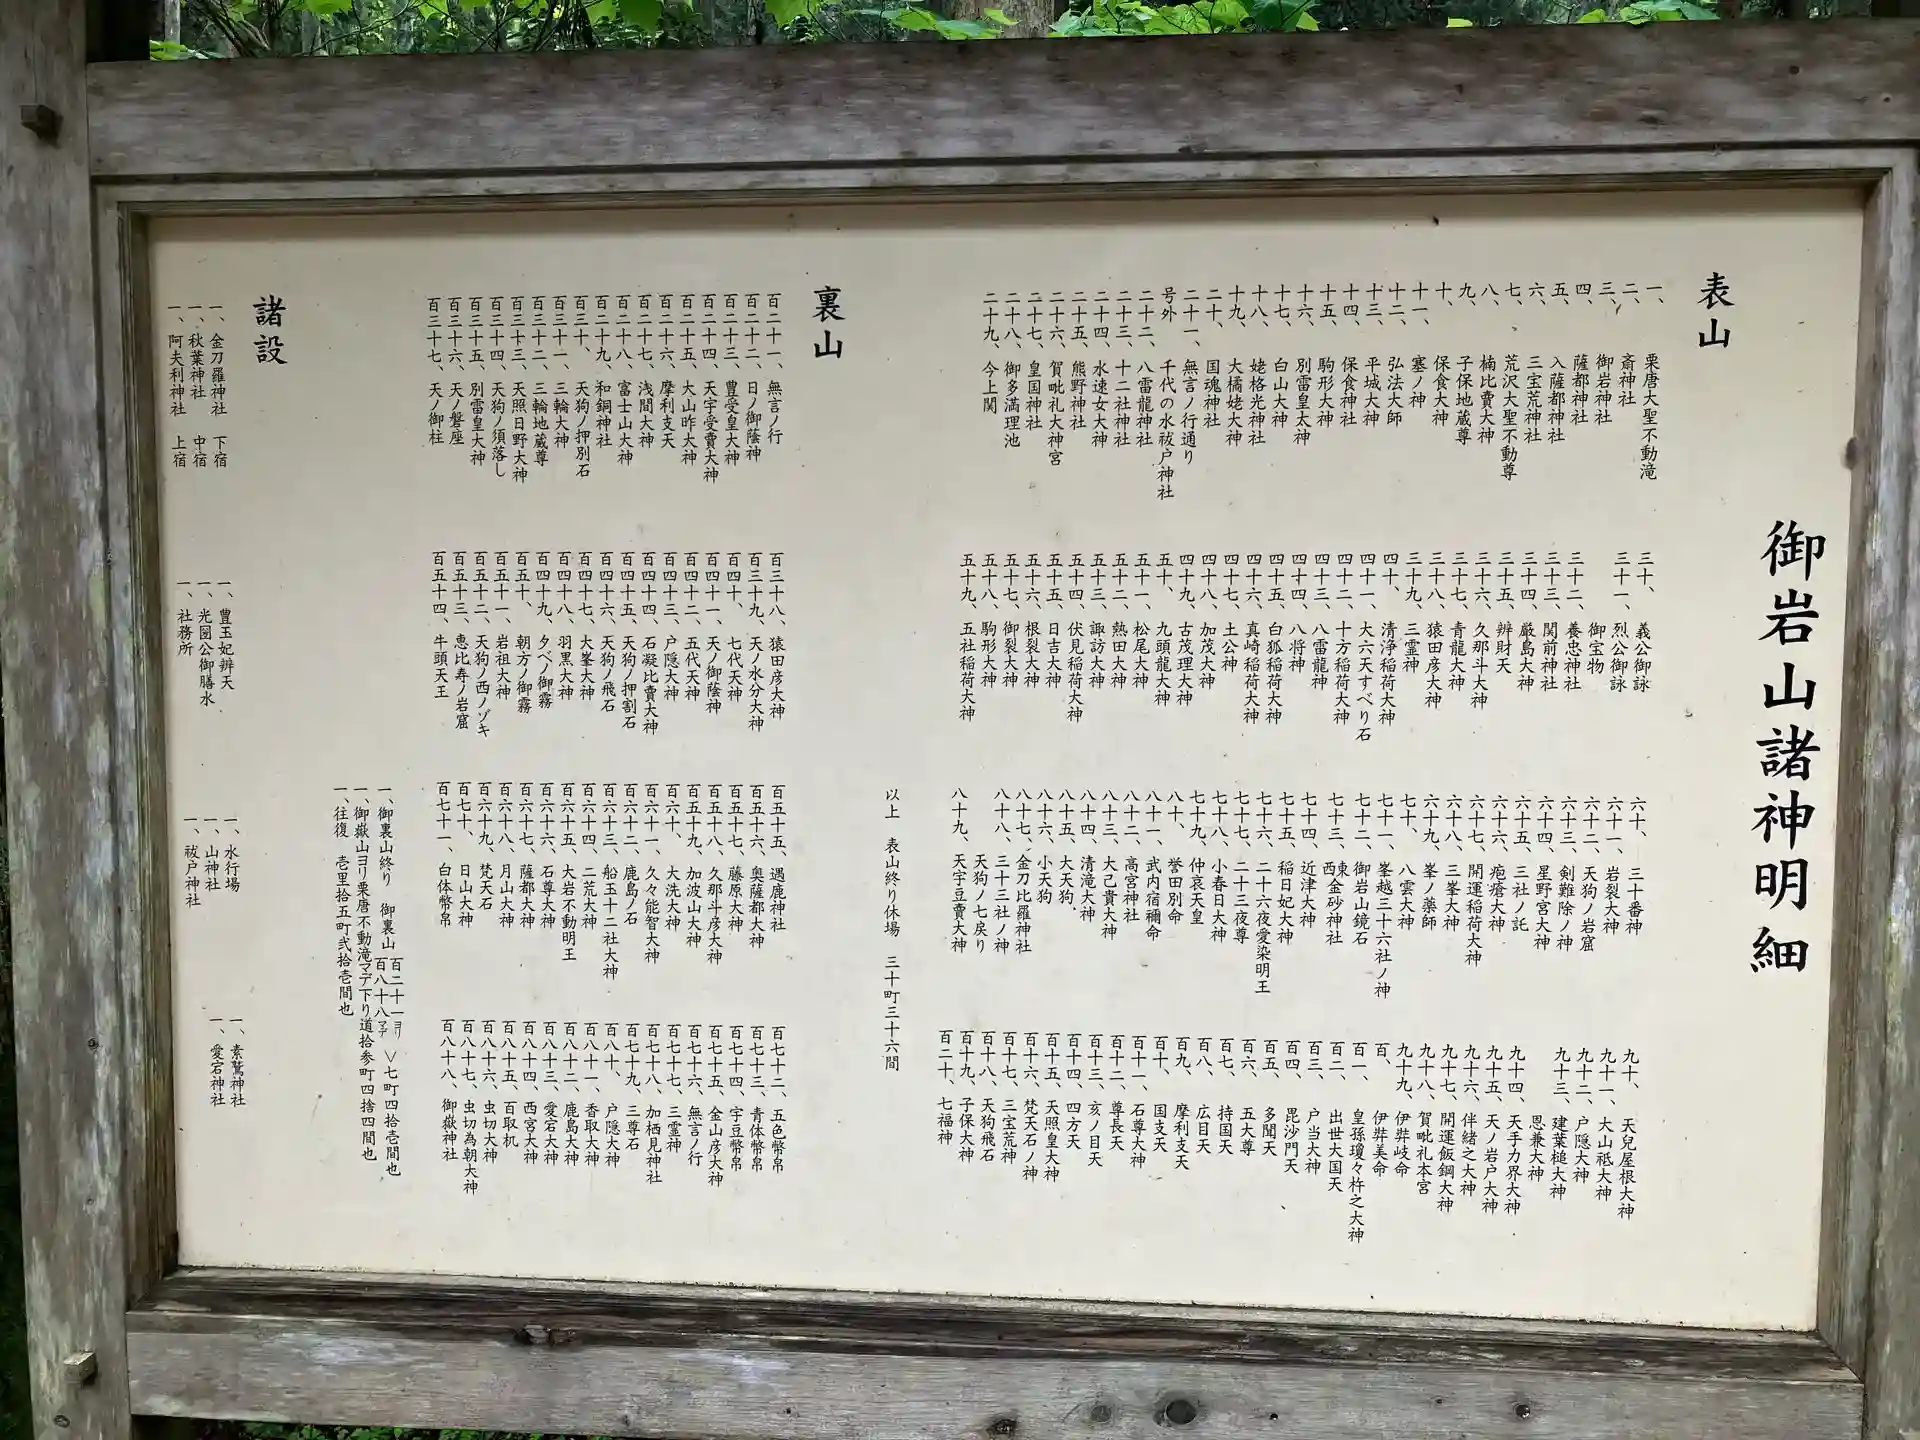 御岩山諸神明細
表山
一、栗唐大聖不動滝
二、斎神社
三、御岩神社
四、薩都神社
五、入薩都神社
六、三宝荒神社
七、荒沢大聖不動尊
八、楠比賣大神
九、子保地蔵尊
十、保食大神
十一、塞ノ神
十二、弘法大師
十三、平城大神
十四、保食神社
十五、駒形大神
十六、別雷皇太神
十七、白山大神
十八、姥格光神社
十九、大橘姥大神
二十、国魂神社
二十一、無言ノ行通り
号外 千代の水祓戸神社
二十二、八雷龍神社
二十三、十二社神社
二十四、水速女大神
二十五、熊野神社
二十六、賀毗礼大神宮
二十七、皇国神社
二十八、御多満理池
二十九、今上関
三十、義公御詠
三十一、烈公御詠
御宝物
三十二、養忠神社
三十三、関前神社
三十四、厳島大神
三十五、辨財天
三十六、久那斗大神
三十七、青龍大神
三十八、猿田彦大神
三十九、三霊神
四十、清浄稲荷大神
四十一、大六天すべり石
四十二、十方稲荷大神
四十三、八雷龍神
四十四、八将神
四十五、白狐稲荷大神
四十六、真崎稲荷大神
四十七、土公神
四十八、加茂大神
四十九、古茂理大神
五十、九頭龍大神
五十一、松尾大神
五十二、熱田大神
五十三、諏訪大神
五十四、伏見稲荷大神
五十五、日吉大神
五十六、根裂大神
五十七、御裂大神
五十八、駒形大神
五十九、五社稲荷大神
六十、三十番神
六十一、岩裂大神
六十二、天狗ノ岩窟
六十三、剣難除ノ神
六十四、星野宮大神
六十五、三社ノ託
六十六、疱瘡大神
六十七、開運稲荷大神
六十八、三峯大神
六十九、峯ノ薬師
七十、八雲大神
七十一、峯越三十六社ノ神
七十二、御岩山鏡石
七十三、東西金砂神社
七十四、近津大神
七十五、稲日妃大神
七十六、二十六夜愛染明王
七十七、二十三夜尊
七十八、小春日大神
七十九、仲哀天皇
誉田別命
八十一、武内宿禰命
八十二、高宮神社
八十三、大己貴大神
八十四、清滝大神
八十五、大天狗、
八十六、小天狗
八十七、金刀比羅神社
八十八、三十三社ノ神
天狗ノ七戻り
八十九、天宇豆賣大神
九十、天兒屋根大神
九十一、大山祗大神
九十二、戸隠大神
九十三、建葉槌大神
恩兼大神
九十四、天手力界大神
九十五、天ノ岩戸大神
九十六、伴緒之大神
九十七、開運飯鋼大神
九十八、賀毗礼本宮
九十九、伊弉岐命
百、伊弉美命
百一、皇孫瓊々杵之大神
百二、出世大国天
百三、戸当大神
百四、毘沙門天
百五、多聞天
百六、五大尊
百七、持国天
百八、広目天
百九、摩利支天
百十、国支天
百十一、石尊大神
百十二、尊長天
百十三、亥ノ目天
百十四、四方天
百十五、天照皇大神
百十六、梵天石ノ神
百十七、三宝荒神
百十八、天狗飛石
百十九、子保大神
百二十、七福神
以上 表山終り休場 三十町三十六間
裏山
百二十一、無言ノ行
百二十二、日ノ御蔭神
百二十三、豊受皇大神
百二十四、天宇受賣大神
百二十五、大山昨大神
百二十六、摩利支天
百二十七、浅間大神
百二十八、富士山大神
百二十九、和銅神社
百三十、天狗ノ押別石
百三十一、三輪大神
百三十二、三輪地蔵尊
百三十三、天照日野大神
百三十四、天狗ノ須落し
百三十五、別雷皇大神
百三十六、天ノ磐座
百三十七、天ノ御柱
百三十八、猿田彦大神
百三十九、天ノ水分大神
百四十、七代天神
百四十一、天ノ御蔭神
百四十二、五代天神
百四十三、戸隠大神
百四十四、石凝比賣大神
百四十五、天狗ノ押割石
百四十六、天狗ノ飛石
百四十七、大峯大神
百四十八、羽黒大神
百四十九、夕べノ御霧
百五十、朝方ノ御霧
百五十一、岩祖大神
百五十二、天狗ノ西ノゾキ
百五十三、恵比寿ノ岩窟
百五十四、牛頭天王
百五十五、遇鹿神社
百五十六、奥薩都大神
百五十七、藤原大神
百五十八、久那斗彦大神
百五十九、加波山大神
百六十、大洗大神
百六十一、久々能智大神
百六十二、鹿島ノ石
百六十三、船玉十二社大神
百六十四、二荒大神
百六十五、大岩不動明王
百六十六、石尊大神
百六十七、薩都大神
百六十八、月山大神
百六十九、梵天石
百七十、日山大神
百七十一、白体幣帛
百七十二、五色幣帛
百七十三、青体幣帛
百七十四、宇豆幣帛
百七十五、金山彦大神
百七十六、無言ノ行
百七十七、三霊神
百七十八、加栖見神社
百七十九、三尊石
百八十、戸隠大神
百八十一、香取大神
百八十二、鹿島大神
百八十三、愛宕大神
百八十四、西宮大神
百八十五、百取机
百八十六、虫切大神
百八十七、虫切為朝大神
百八十八、御嶽神社
一、御裏山終り 御裏山 百二十一ヨリ 百八十八マデ ∨七町四拾壱間也
一、御嶽山ヨリ栗唐不動滝マデ下り道拾参町四捨四間也
一、往復 壱里拾五町弐拾壱間也
諸設
一、金刀羅神社 下宿
一、秋葉神社 中宿
一、阿夫利神社 上宿
一、豊玉妃辨天
一、光圀公御膳水
一、社務所
一、水行場
一、山神社
一、祓戸神社
一、素鵞神社
一、愛宕神社